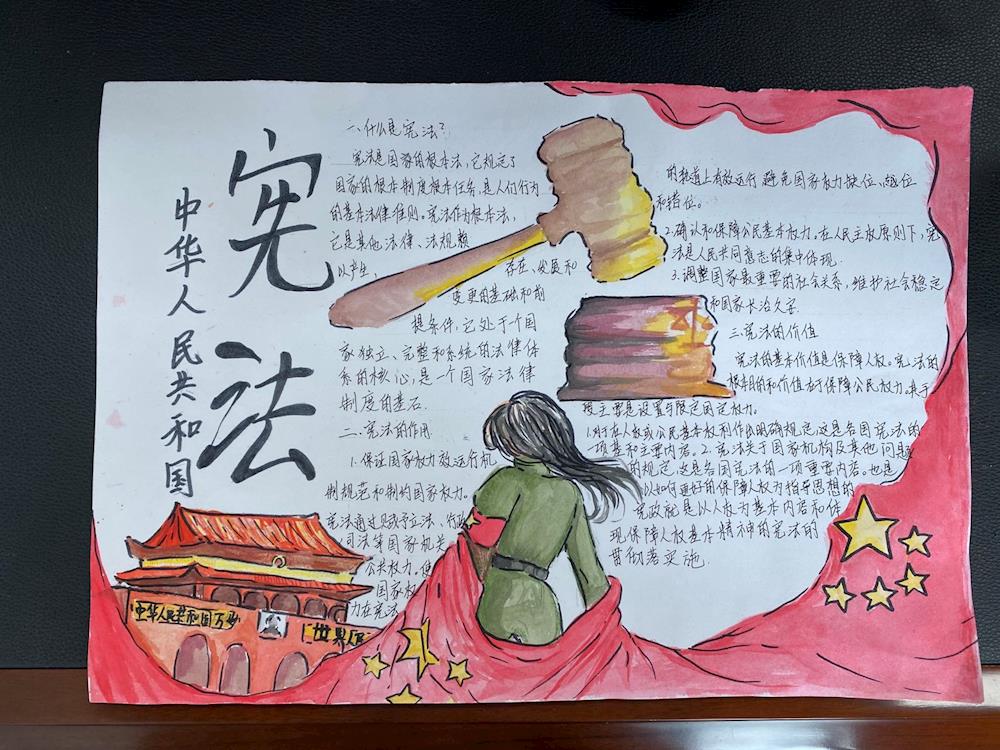 中华人民共和国
宪法
一、什么是宪法？
宪法是国家的根本法，它规定了
国家的根本制度根本任务，是人们行为
的基本法律准则。宪法作为根本法，
它是其他法律、法规赖
以产生、存在、发展和
变更的基础和前
提条件，它处于一个国
家独立、完整和系统的法律体
系的核心，是一个国家法律
制度的基石.
二、宪法的作用
1.保证国家权力放运行机
制规范和制约国家权力。
宪法通过赋予立法、行政
司法等国家机关
公共权力。使
国家权
力在宪法
的轨道上有效运行 避免国家权力缺位、越位
和错位。
2.确认和保障公民基本权力。在人民主权原则下，宪
法是人民共同意志的集中体现.
3.调整国家最重要的社会关系，维护社会稳定
和国家长治久安.
三.宪法的价值
宪法的基本价值是保障人权。宪法的
根本目的和价值在于保障公民权力。其手
段主要是设置与限定国定权力。
1.对于在人权或公民基本权利作出明确规定，这是各国宪法的
一项基和主要内容。2.宪法关于国家机构及其他问题
的规定 这是各国宪法的一项重要内容。也是
以如何更好的保障人权为指导思想的
宪政就是以人权为基本内容和体
现保障人权基本精神的宪法的
贯彻落实施.
中华人民共和国万岁
世界人民